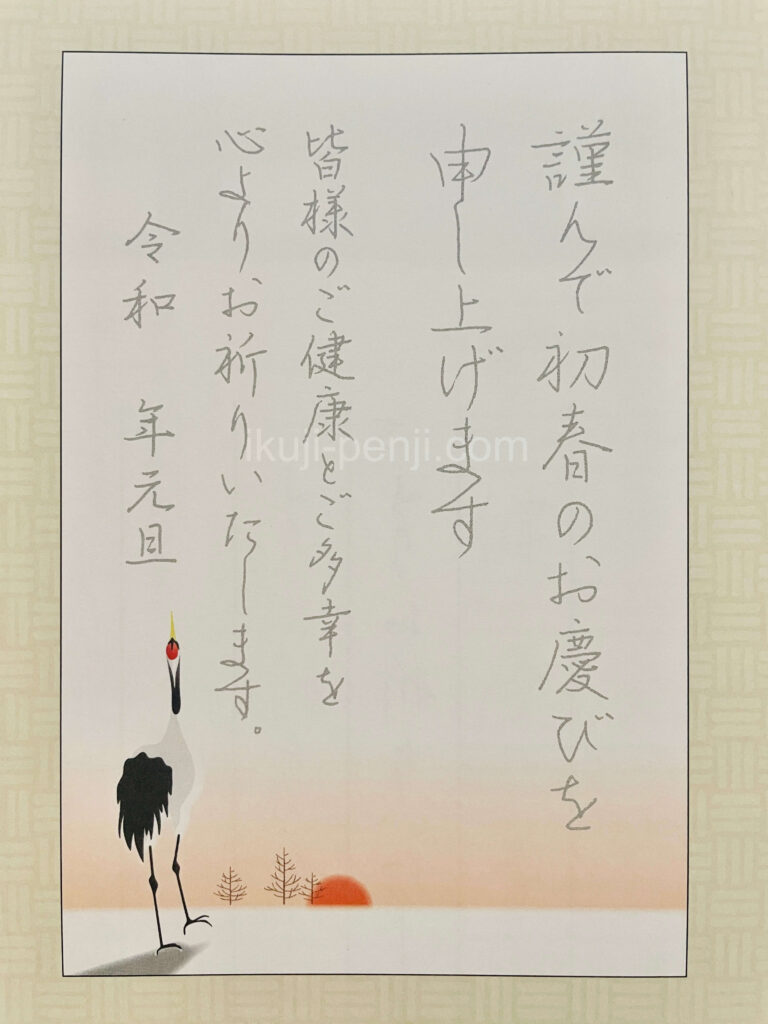 謹んで初春のお慶びを
申し上げます
皆様のご健康とご多幸を
心よりお祈りいたします。
令和　年元旦
Ikuji-penji.com